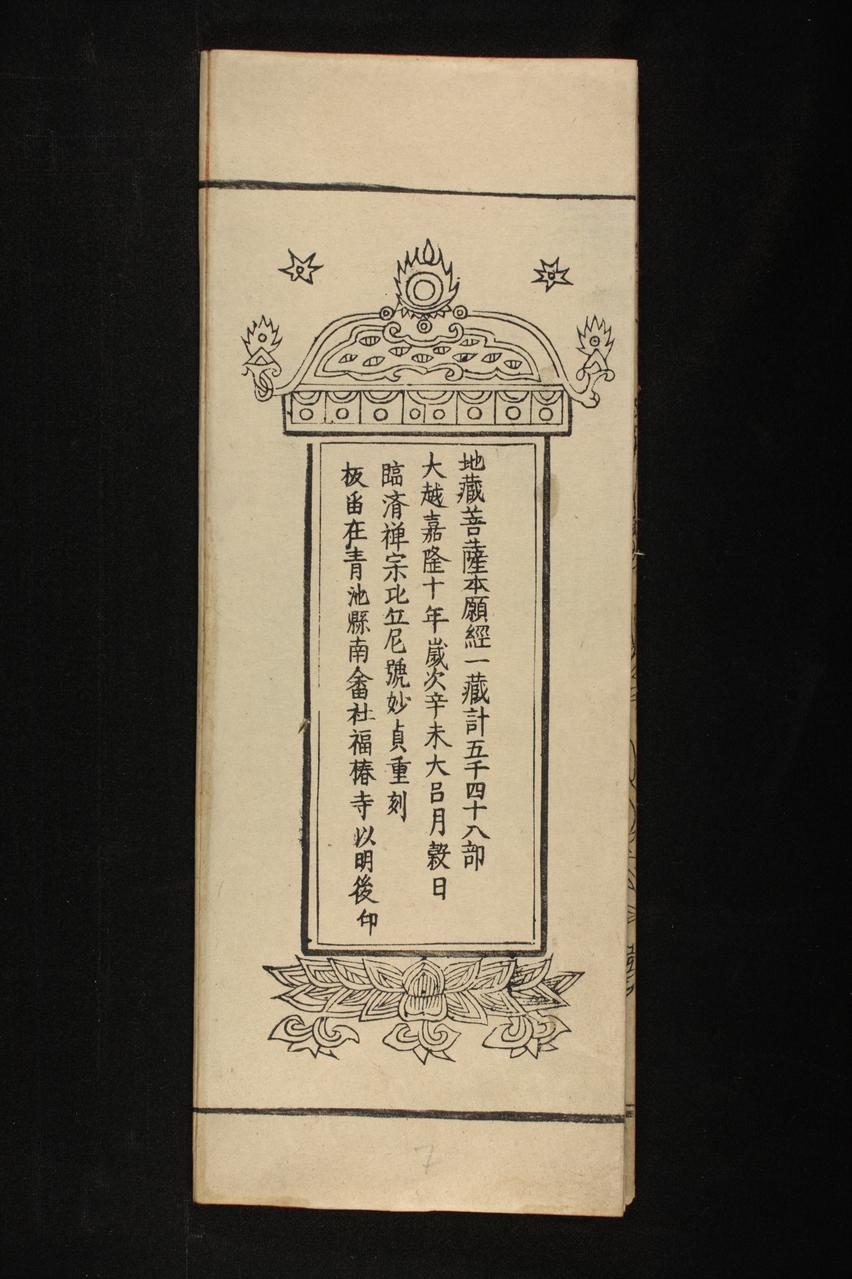 地藏菩薩本願經一藏計五千四十八部
大越嘉隆十年嵗次辛未大吕月穀日
臨済禅宗比丘尼號妙貞重刻
板畱在青池縣南畲社福椿寺以明後印
7